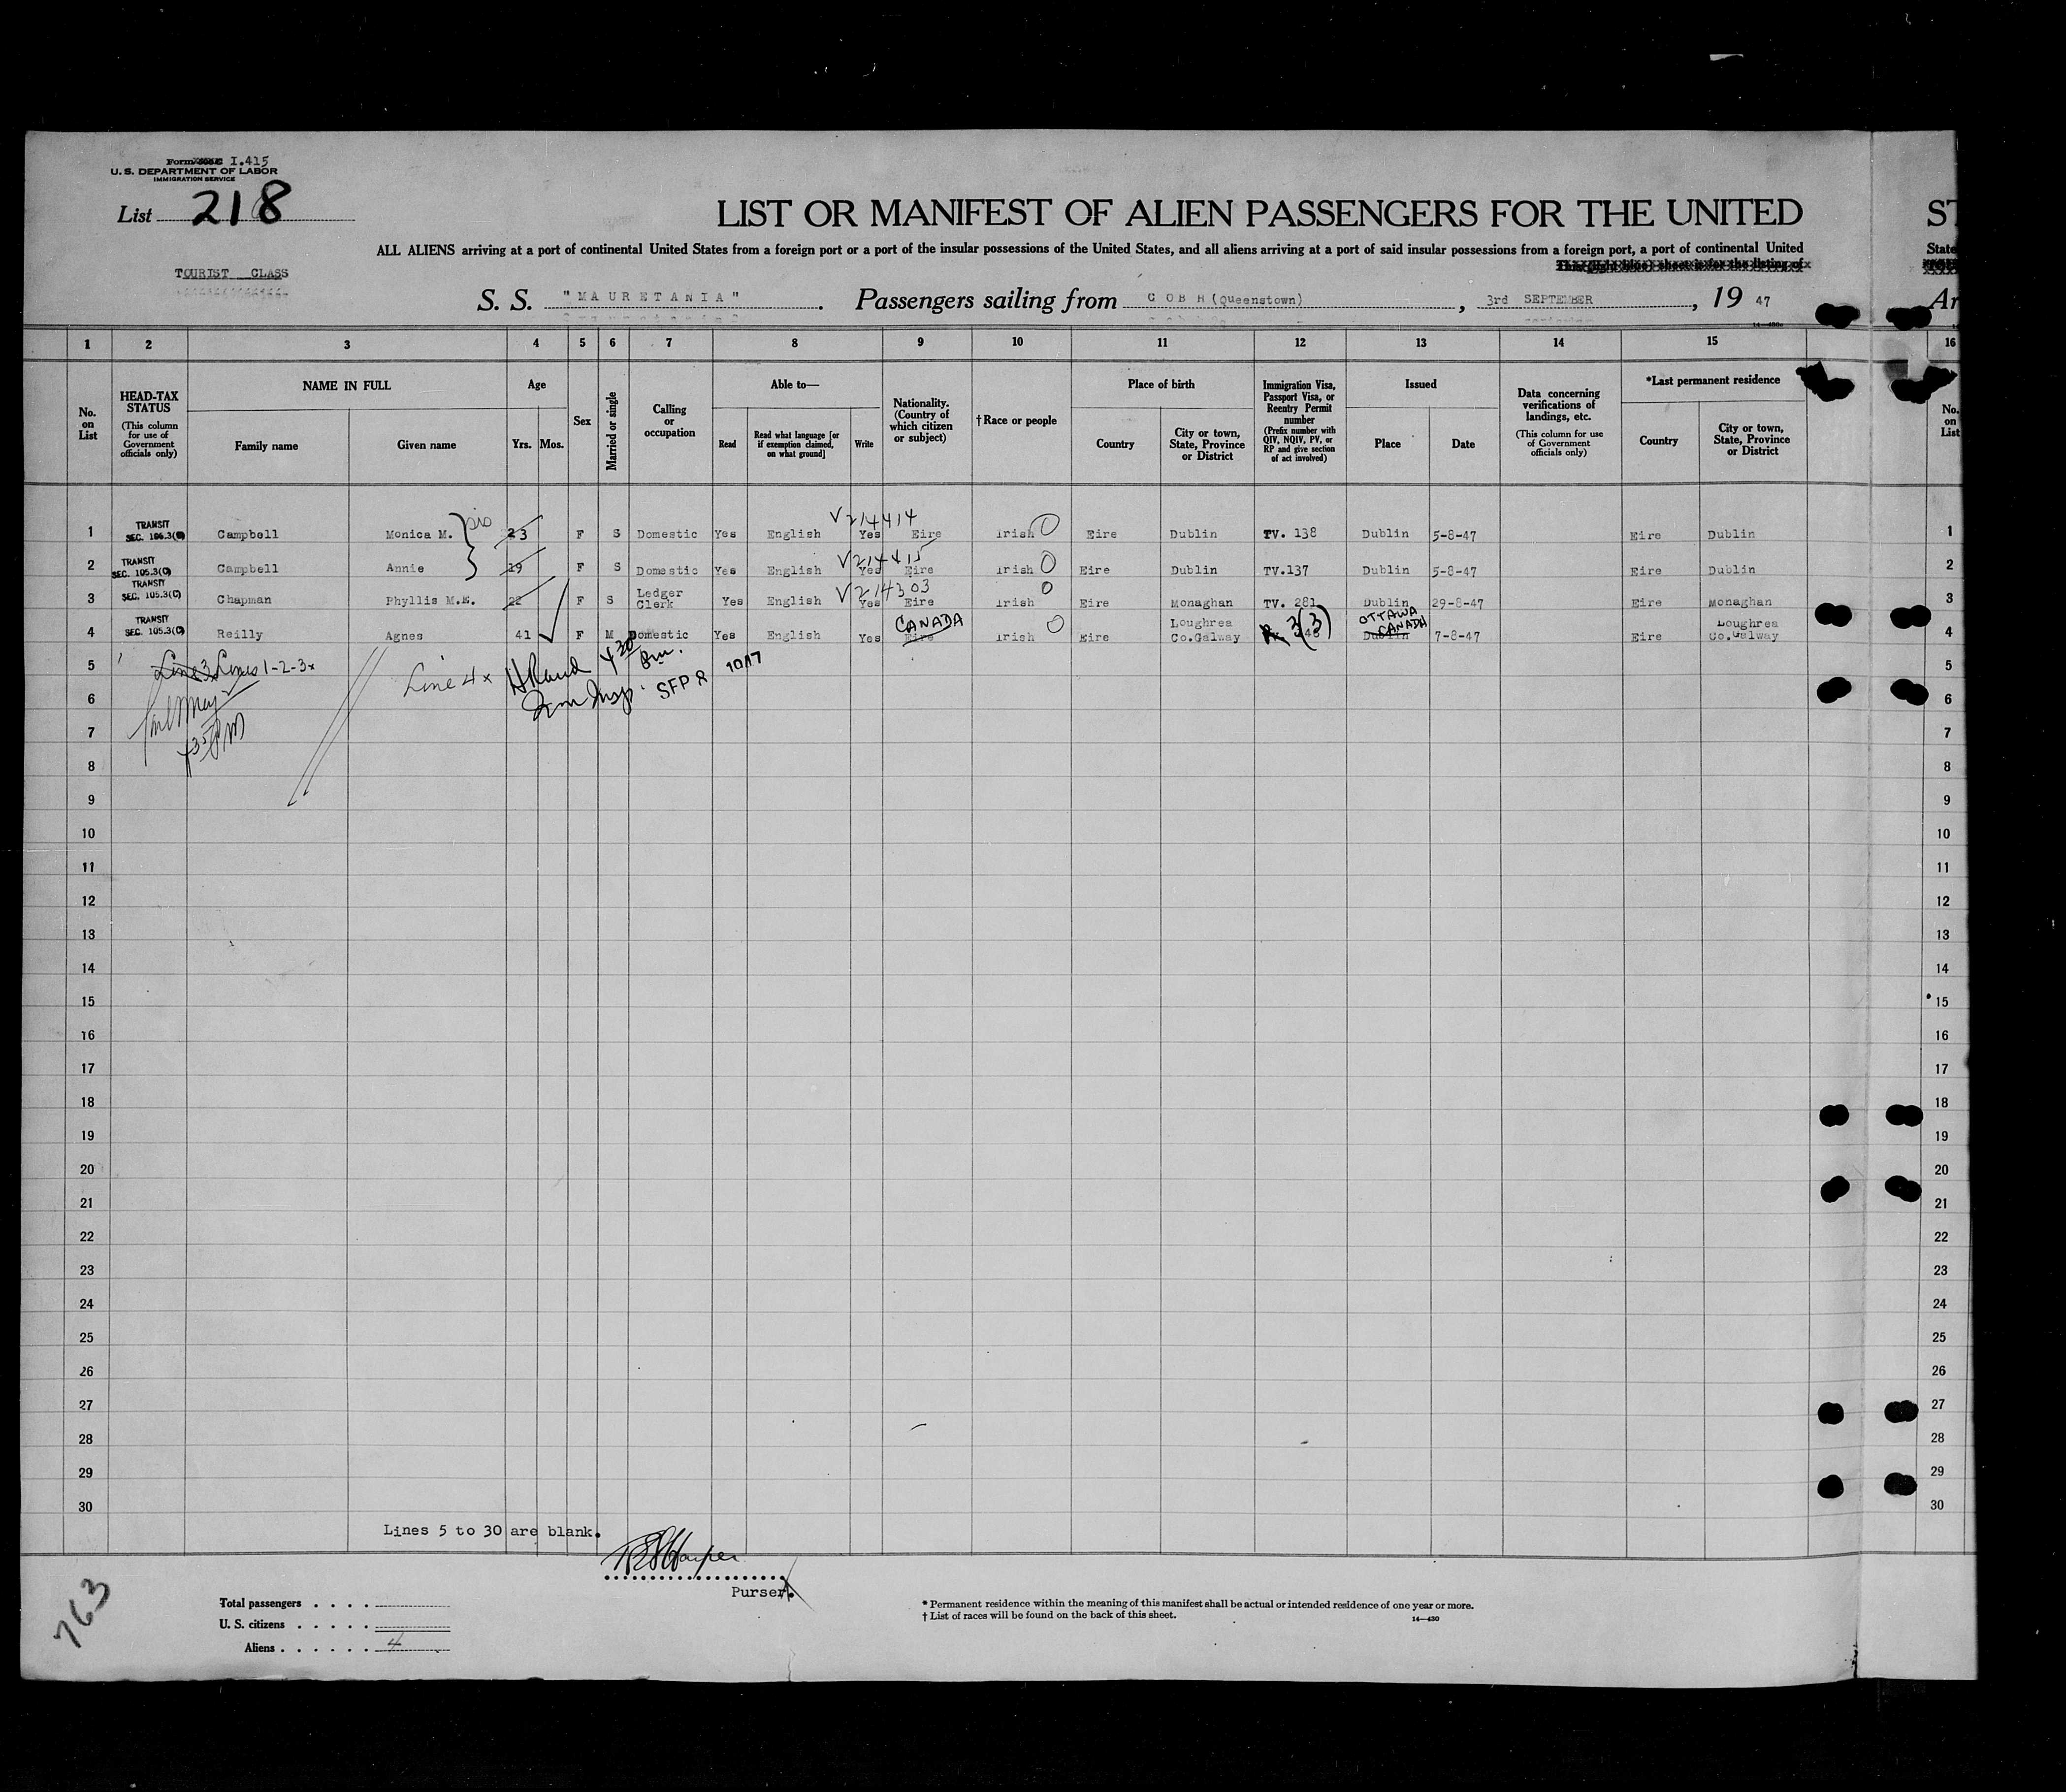 Form I.415
U. S. DEPARTMENT OF LABOR
IMMIGRATION SERVICE
List 218
LIST OR MANIFEST OF ALIEN PASSENGERS FOR THE UNITED ST
ALL ALIENS arriving at a port of continental United States from a foreign port or a port of the insular possessions of the United States, and all aliens arriving at a port of said insular possessions from a foreign port, a port of continental United State
This sheet is for the listing of
TOURIST CLASS
S. S. "MAURETANIA". Passengers sailing from COBH (Queenstown), 3rd SEPTEMBER, 19 47 Ar
14—430
1 2 3 4 5 6 7 8 9 10 11 12 13 14 15 16
No. on List
HEAD-TAX STATUS
(This column for use of Government officials only)
NAME IN FULL
Family name Given name
Age
Yrs. Mos.
Sex
Married or single
Calling or occupation
Able to—
Read
Read what language [or if exemption claimed, on what ground]
Write
Nationality. (Country of which citizen or subject)
† Race or people
Place of birth
Country
City or town, State, Province or District
Immigration Visa, Passport Visa, or Reentry Permit number
(Prefix number with QIV, NQIV, PV, or RP and give section of act involved)
Issued
Place Date
Data concerning verifications of landings, etc.
(This column for use of Government officials only)
*Last permanent residence
Country
City or town, State, Province or District
No. on List
V214414
1 TRANSIT SEC. 105.3(C) Campbell Monica M. sis 23 F S Domestic Yes English Yes Eire Irish O Eire Dublin TV. 138 Dublin 5-8-47 Eire Dublin 1
V214415
2 TRANSIT SEC. 105.3(C) Campbell Annie 19 F S Domestic Yes English Yes Eire Irish O Eire Dublin TV.137 Dublin 5-8-47 Eire Dublin 2
V214303
3 TRANSIT SEC. 105.3(C) Chapman Phyllis M.E. 22 F S Ledger Clerk Yes English Yes Eire Irish O Eire Monaghan TV. 281 Dublin 29-8-47 Eire Monaghan 3
CANADA 3(3) OTTAWA CANADA
4 TRANSIT SEC. 105.3(C) Reilly Agnes 41 F M Domestic Yes English Yes Eire Irish O Eire Loughrea Co.Galway Dublin 7-8-47 Eire Loughrea Co.Galway 4
5 Line 3 Lines 1-2-3x Line 4x 430 Pm. 5
6 Imm Insp. SEP 8 1947 6
7 435 PM 7
8 8
9 9
10 10
11 11
12 12
13 13
14 14
15 15
16 16
17 17
18 18
19 19
20 20
21 21
22 22
23 23
24 24
25 25
26 26
27 27
28 28
29 29
30 30
Lines 5 to 30 are blank.
Purser.
763
Total passengers . . . .
U. S. citizens . . . . .
Aliens . . . . . . 4
* Permanent residence within the meaning of this manifest shall be actual or intended residence of one year or more.
† List of races will be found on the back of this sheet.
14—430